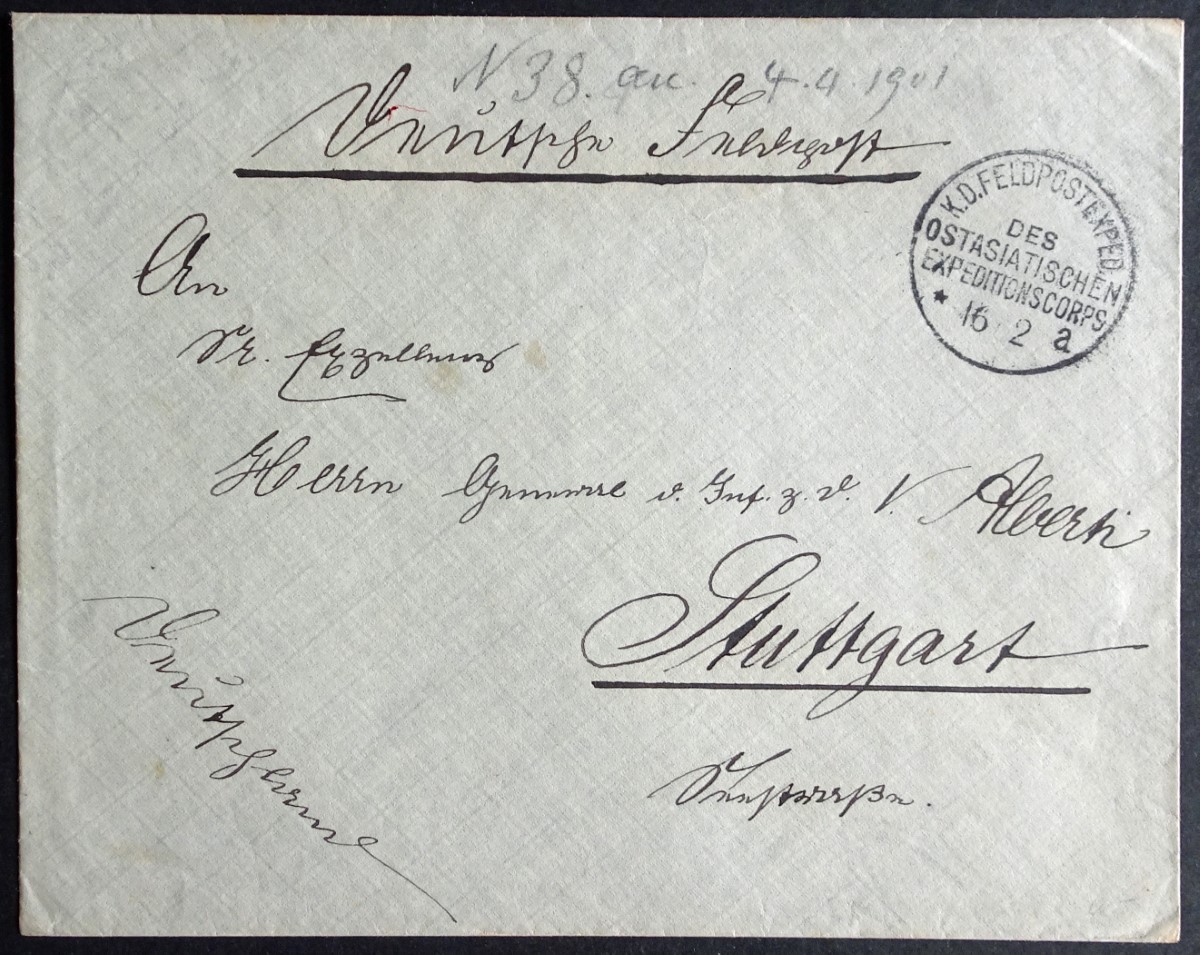 N 38. an. 4.4.1901
Deutsche Feldpost
K.D. FELDPOSTEXPED.
DES
OSTASIATISCHEN
EXPEDITIONSCORPS
* 16 2 a
An
Sr. Exzellenz
Herrn General d. Inf. z. D. v. Alberti
Stuttgart
Seestraße.
Deutschland